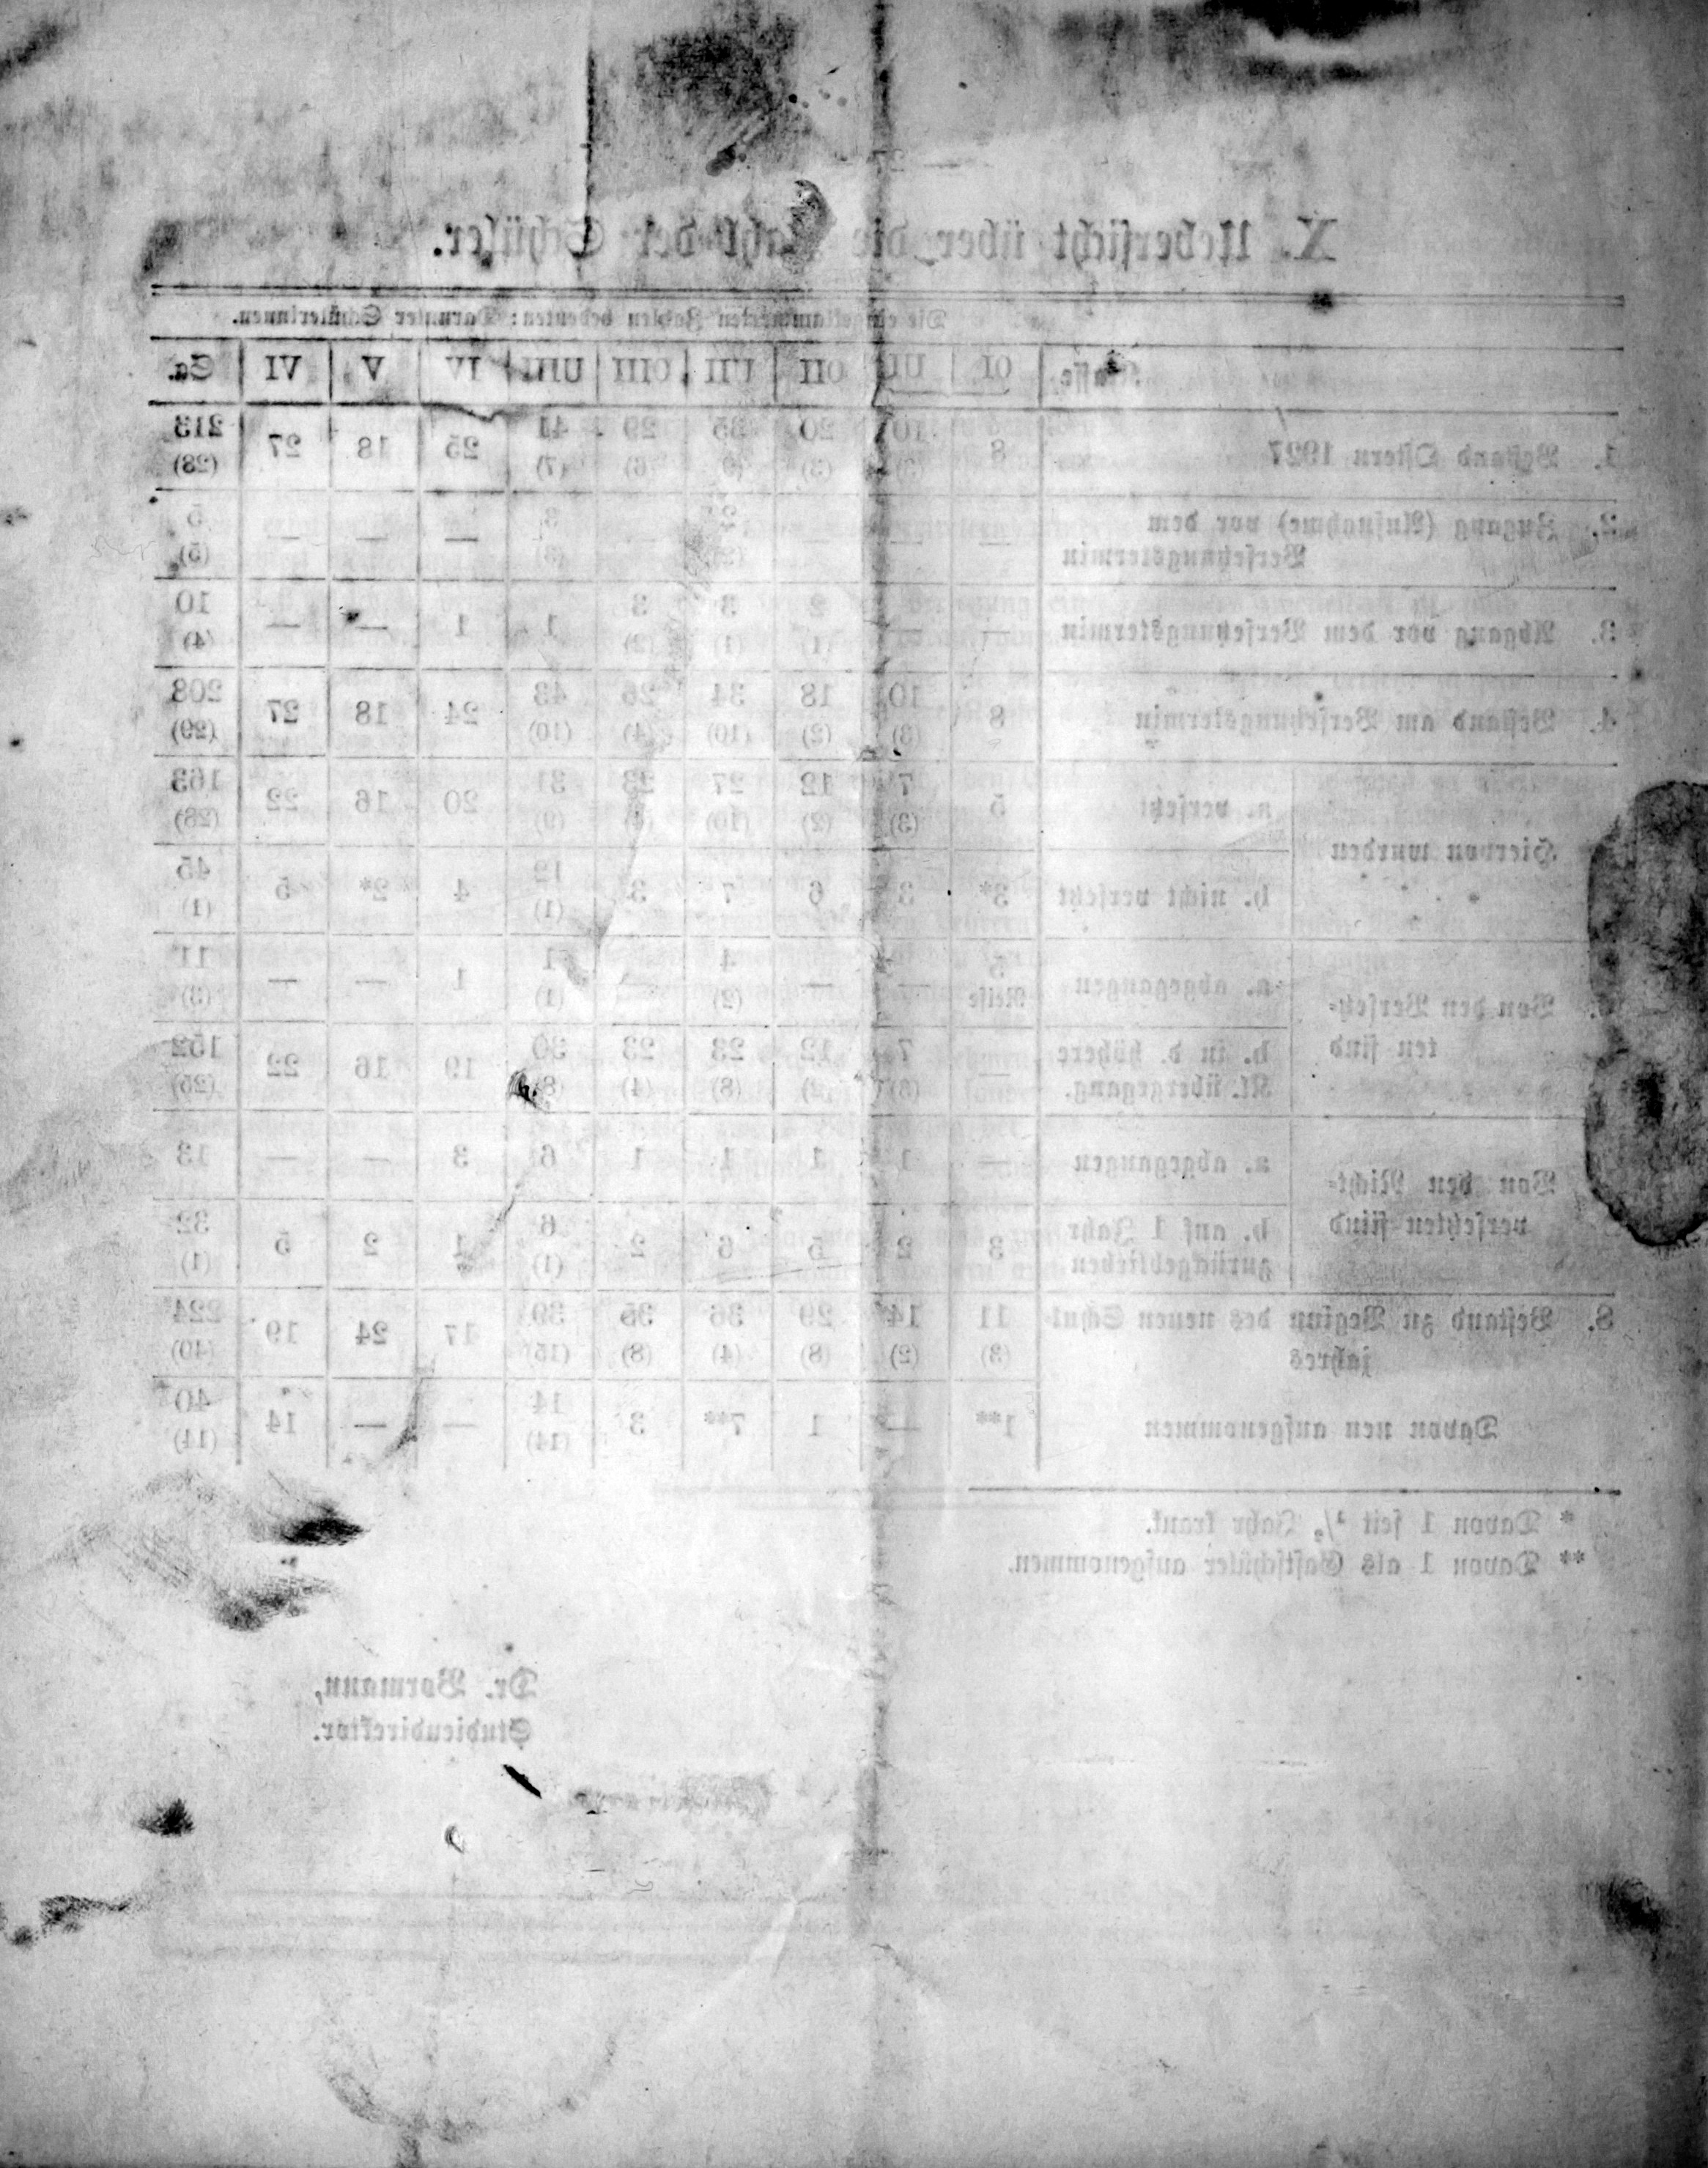 — 27 —
X. Uebersicht über die Zahl der Schüler.
Die eingeklammerten Zahlen bedeuten: Darunter Schülerinnen.
Klasse OI UI OII UII OIII UIII IV V VI Sa.
1. Bestand Ostern 1927 8 10 (3) 20 (3) 35 (9) 29 (6) 41 (7) 25 18 27 213 (28)
2. Zugang (Aufnahme) vor dem
Versetzungstermin — — — 2 (2) — 3 (3) — — — 5 (5)
3. Abgang vor dem Versetzungstermin — — 2 (1) 3 (1) 3 (2) 1 1 — — 10 (4)
4. Bestand am Versetzungstermin 8 10 (3) 18 (2) 34 (10) 26 (4) 43 (10) 24 18 27 208 (29)
Hiervon wurden
a. versetzt 5 7 (3) 12 (2) 27 (10) 23 (4) 31 (9) 20 16 22 163 (28)
b. nicht versetzt 3* 3 6 7 3 12 (1) 4 2* 5 45 (1)
Von den Versetz-
ten sind
a. abgegangen 5 Reife — — 4 (2) — 1 (1) 1 — — 11 (3)
b. in d. höhere
Kl. übergegang. — 7 (3) 12 (2) 23 (8) 23 (4) 30 (8) 19 16 22 152 (25)
Von den Nicht-
versetzten sind
a. abgegangen — 1 1 1 1 6 3 — — 13
b. auf 1 Jahr
zurückgeblieben 3 2 5 6 2 6 (1) 1 2 5 32 (1)
8. Bestand zu Beginn des neuen Schul-
jahres 11 (3) 14 (2) 29 (8) 36 (4) 35 (8) 39 (15) 17 24 19 224 (40)
Davon neu aufgenommen 1** — 1 7** 3 14 (14) — — 14 40 (14)
* Davon 1 seit ½ Jahr krank.
** Davon 1 als Gastschüler aufgenommen.
Dr. Bormann,
Studiendirektor.